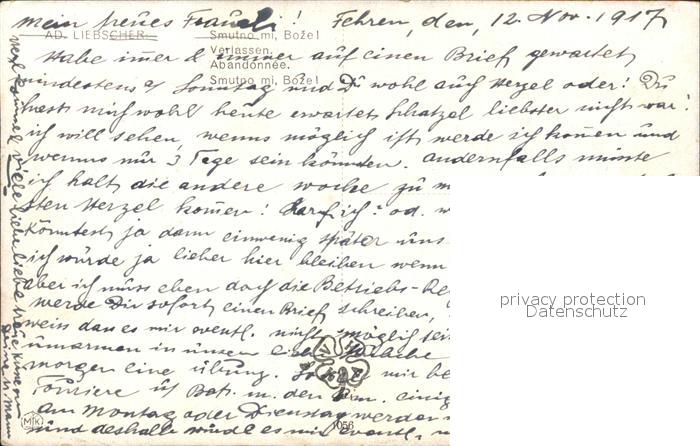 mein treues Fraueli! Fehren, den, 12. Nov. 1917
AD. LIEBSCHER. Smutno mi, Bože!
Habe immer & immer auf einen Brief gewartet,
Verlassen.
Abandonnée.
mindestens a/ Sonntag und Du wohl auf Herzel oder! Du
Smutno mi, Boże!
hast mich wohl heute erwartet Schatzel liebster nicht war
ich will sehen, wenns möglich ist, werde ich kommen und
wenns nur 3 Tage sein könnten. Andernfalls müsste
ich halt, die andere woche zu
sten Herzel kommen! Darf ich? od.
könntest, ja dann einwenig später uns
ich würde ja lieber hier bleiben wenn
aber ich muss eben doch die Betriebs-
werde Dir sofort einen Brief schreiben,
weiss das es mir eventl. nicht möglich
umarmen in unserm
morgen eine übung. mir
m. den einig
Am Montag oder Dienstag werden
und deshalb würde es mir eventl.
viele liebe treue
Deine
MK
1056
privacy protection
Datenschutz